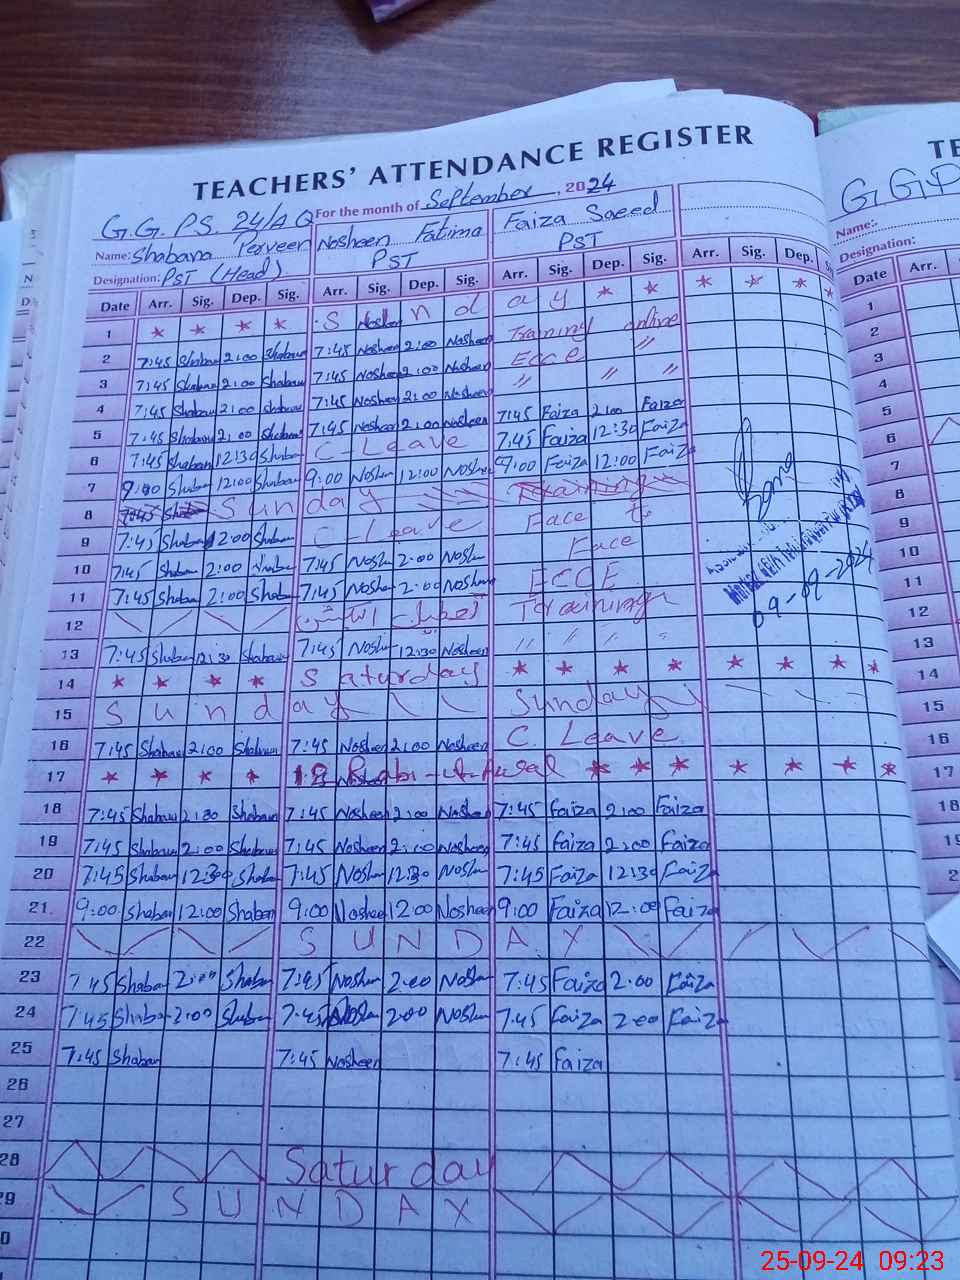 TEACHERS' ATTENDANCE REGISTER
G.G.P.S. 24/A.Q For the month of September, 2024
Name: Shabana Perveen Nosheen Fatima Faiza Saeed
Designation: PST (Head) PST PST
Date Arr. Sig. Dep. Sig. Arr. Sig. Dep. Sig. Arr. Sig. Dep. Sig. Arr. Sig. Dep.
1 * * * * S n d a y * * * * * *
2 7:45 Shaban 2:00 Shaban 7:45 Nosheen 2:00 Nosheen Training online
3 7:45 Shaban 2:00 Shaban 7:45 Nosheen 2:00 Nosheen ECCE "
4 7:45 Shaban 2:00 Shaban 7:45 Nosheen 2:00 Nosheen " " "
5 7:45 Shaban 2:00 Shaban 7:45 Nosheen 2:00 Nosheen 7:45 Faiza 2:00 Faiza
6 7:45 Shaban 12:30 Shaban C-Leave 7:45 Faiza 12:30 Faiza
7 9:00 Shaban 12:00 Shaban 9:00 Noshen 12:00 Noshen 9:00 Faiza 12:00 Faiza
8 7:45 Sunday Training
9 7:45 Shaban 2:00 Shaban C-Leave Face to
10 7:45 Shaban 2:00 Shaban 7:45 Noshen 2:00 Noshen Face
11 7:45 Shaban 2:00 Shaban 7:45 Noshen 2:00 Noshen ECCE
12 Training
13 7:45 Shaban 12:30 Shaban 7:45 Noshen 12:30 Nosheen " " " "
09-09-2024
14 * * * * Saturday * * * * * * *
15 Sunday Sunday
16 7:45 Shaban 2:00 Shaban 7:45 Nosheen 2:00 Nosheen C. Leave
17 * * * * 12 Rabi-ul-Awal * * * * * * *
18 7:45 Shaban 2:00 Shaban 7:45 Nosheen 2:00 Nosheen 7:45 Faiza 2:00 Faiza
19 7:45 Shaban 2:00 Shaban 7:45 Nosheen 2:00 Nosheen 7:45 Faiza 2:00 Faiza
20 7:45 Shaban 12:30 Shaban 7:45 Noshen 12:30 Noshen 7:45 Faiza 12:30 Faiza
21 9:00 Shaban 12:00 Shaban 9:00 Nosheen 12:00 Nosheen 9:00 Faiza 12:00 Faiza
22 S U N D A Y
23 7:45 Shaban 2:00 Shaban 7:45 Noshen 2:00 Noshen 7:45 Faiza 2:00 Faiza
24 7:45 Shaban 2:00 Shaban 7:45 Noshen 2:00 Noshen 7:45 Faiza 2:00 Faiza
25 7:45 Shaban 7:45 Nosheen 7:45 Faiza
26
27
28 Saturday
29 S U N D A Y
0
TE
G.G.P
Name:
Designation:
Date Arr.
1
2
3
4
5
6
7
8
9
10
11
12
13
14
15
16
17
18
19
2
25-09-24 09:23